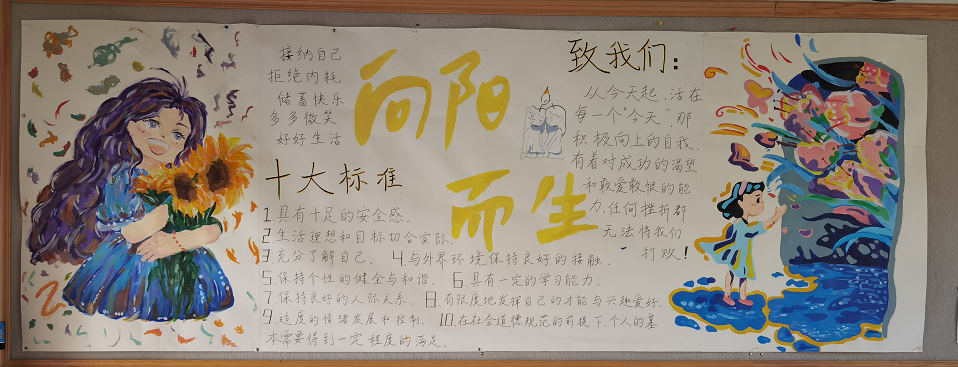 接纳自己
拒绝内耗
储蓄快乐
多多微笑
好好生活
向阳
而生
十大标准
1.具有十足的安全感.
2.生活理想和目标切合实际.
3.充分了解自己. 4.与外界环境保持良好的接触.
5.保持个性的健全与和谐. 6.具有一定的学习能力.
7.保持良好的人际关系. 8.有限度地发挥自己的才能与兴趣爱好.
9.适度的情绪发展和控制. 10.在社会道德规范的前提下,个人的基
本需要得到一定程度的满足.
致我们:
从今天起,活在
每一个“今天”,那
积极向上的自我,
有着对成功的渴望
和敢爱敢恨的能
力,任何挫折都
无法将我们
打败!